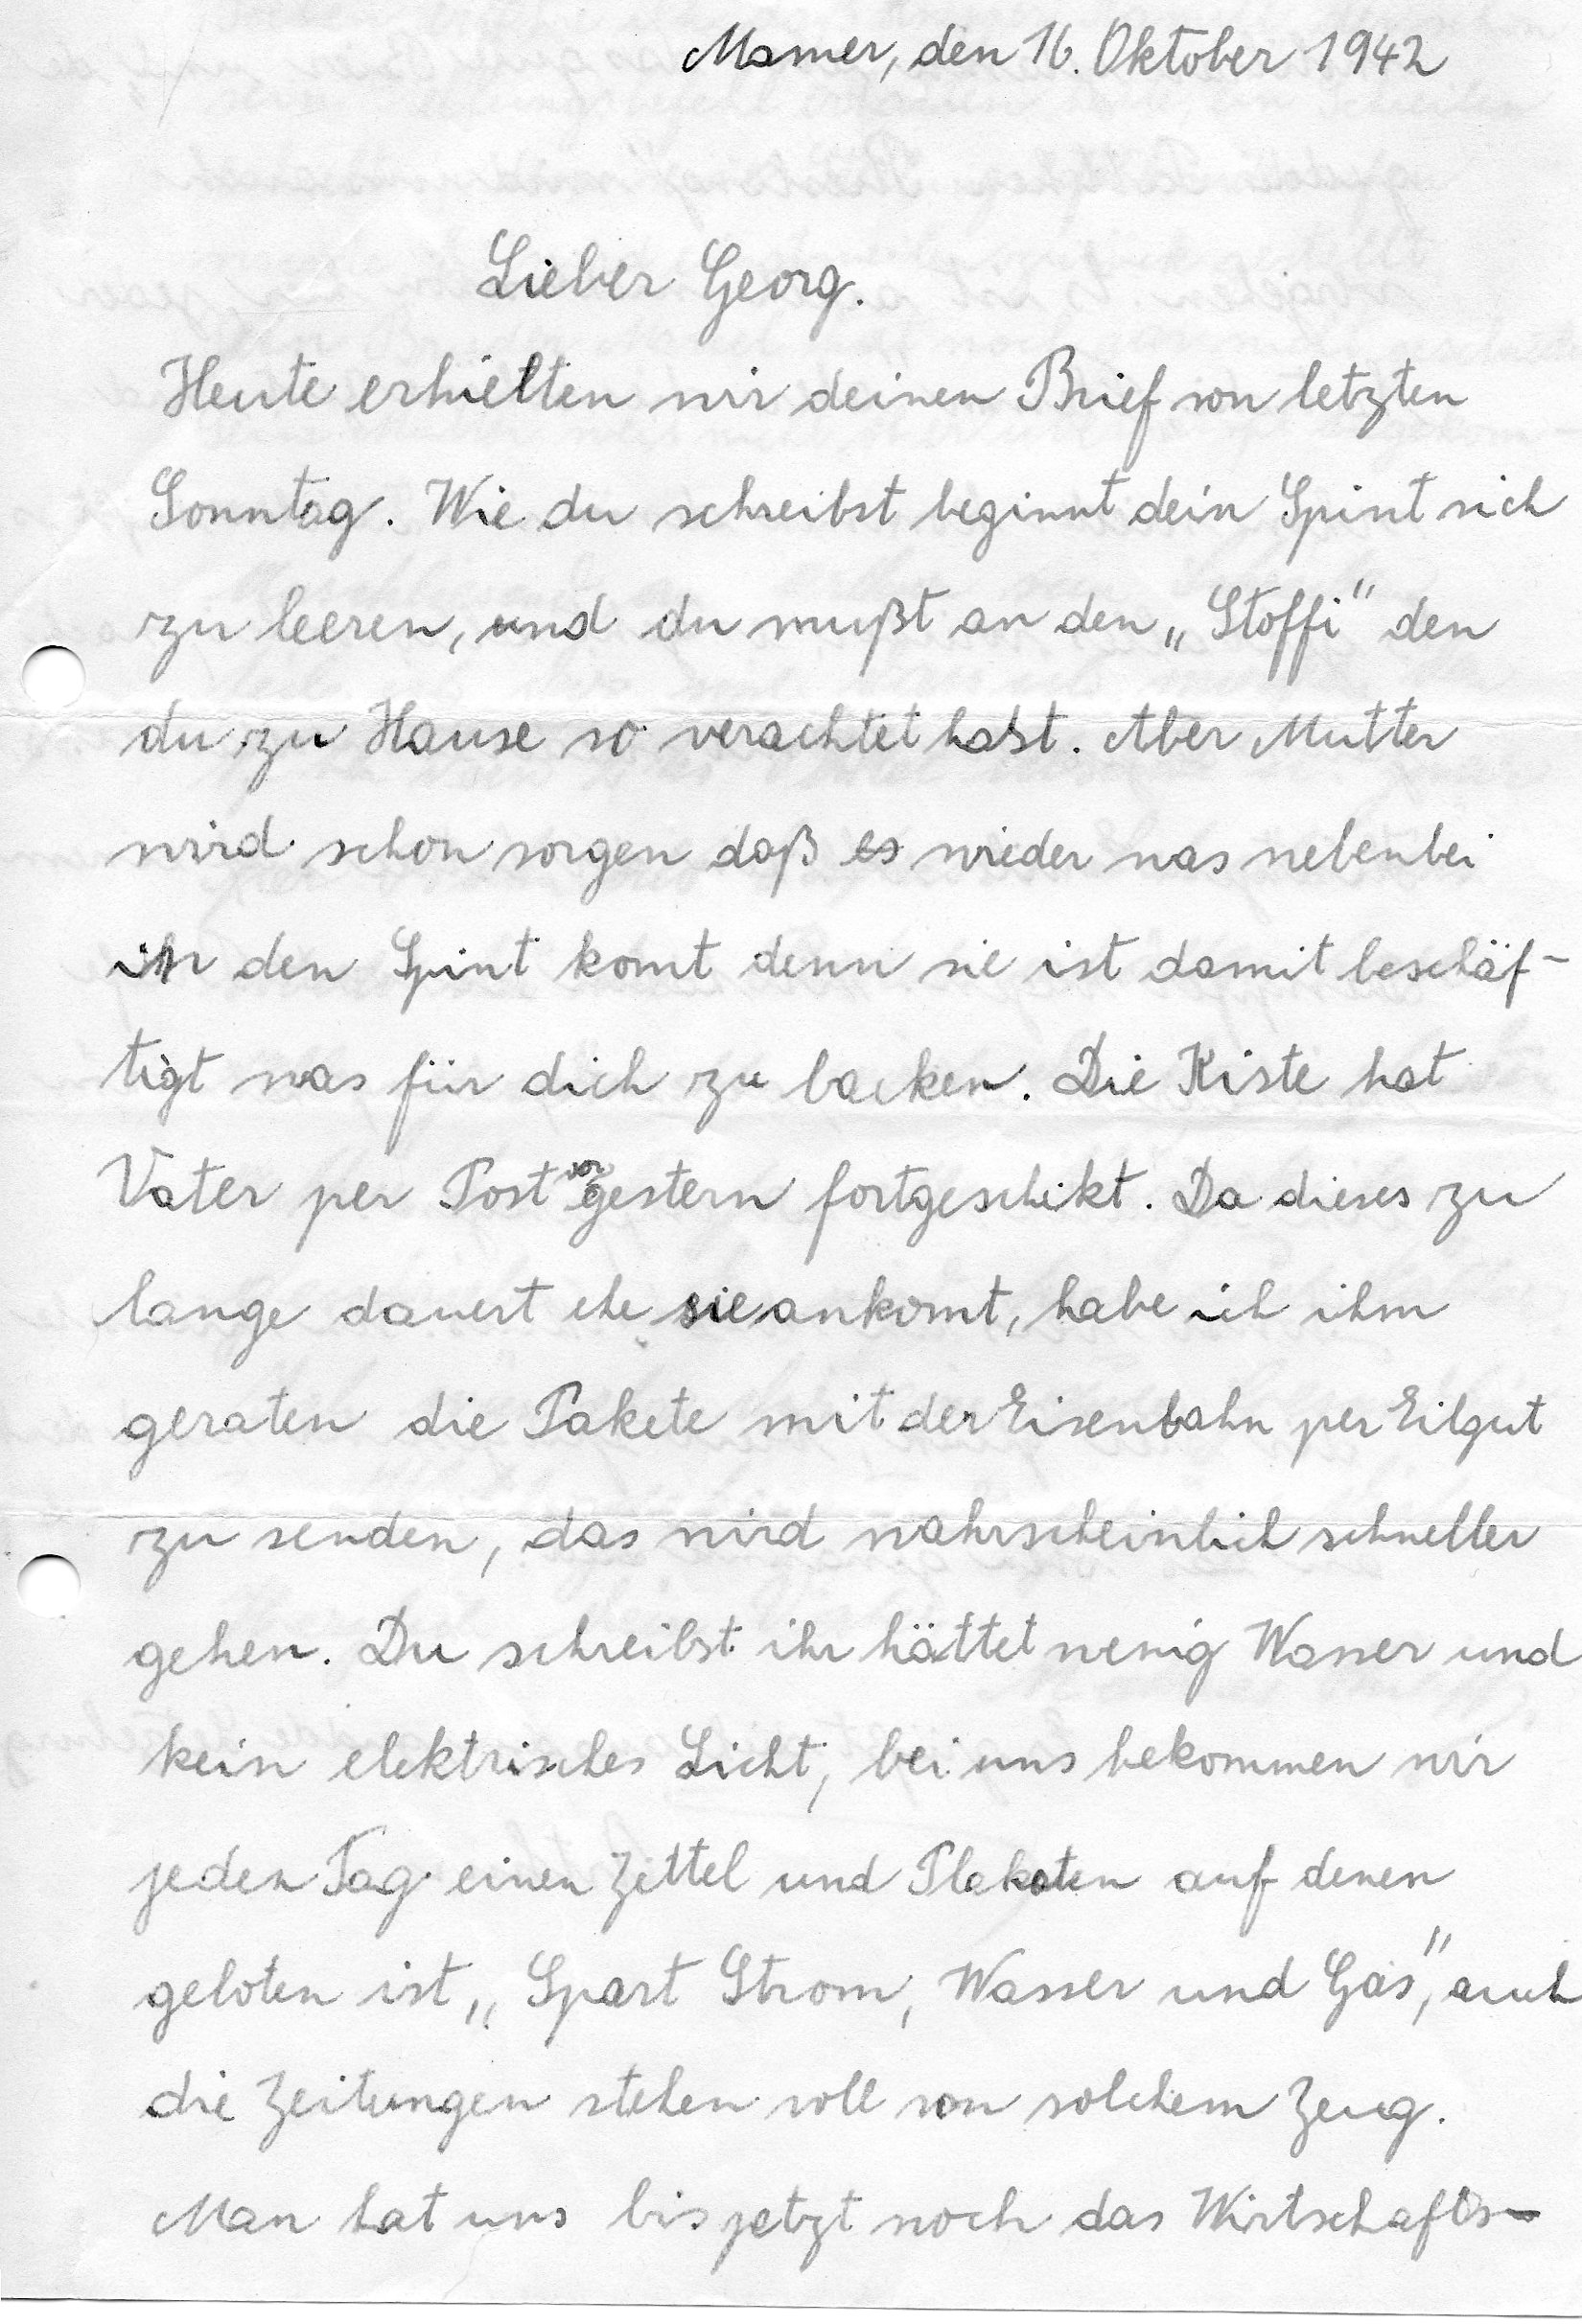 Mamer, den 16. Oktober 1942
Lieber Georg.
Heute erhielten wir deinen Brief von letzten
Sonntag. Wie du schreibst beginnt dein Spint sich
zu leeren, und du mußt an den „Stoffi" den
du zu Hause so verachtet hast. Aber Mutter
wird schon sorgen daß es wieder was nebenbei
in den Spint komt denn sie ist damit beschäf-
tigt was für dich zu backen. Die Kiste hat
Vater per Post vorgestern fortgeschikt. Da dieses zu
lange dauert ehe sie ankomt, habe ich ihm
geraten die Pakete mit der Eisenbahn per Eilgut
zu senden, das wird wahrscheinlich schneller
gehen. Du schreibst ihr hättet wenig Wasser und
kein elektrisches Licht, bei uns bekommen wir
jeden Tag einen Zettel und Plakaten auf denen
geboten ist „Spart Strom, Wasser und Gas", auch
die Zeitungen stehen voll von solchem Zeug.
Man hat uns bis jetzt noch das Wirtschafts-